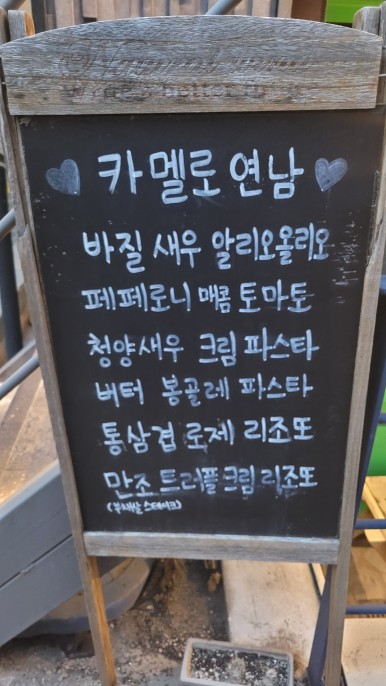 카멜로 연남
바질 새우 알리오올리오
페페로니 매콤 토마토
청양새우 크림 파스타
버터 봉골레 파스타
통삼겹 로제 리조또
만조 트러플 크림 리조또
(부채살 스테이크)